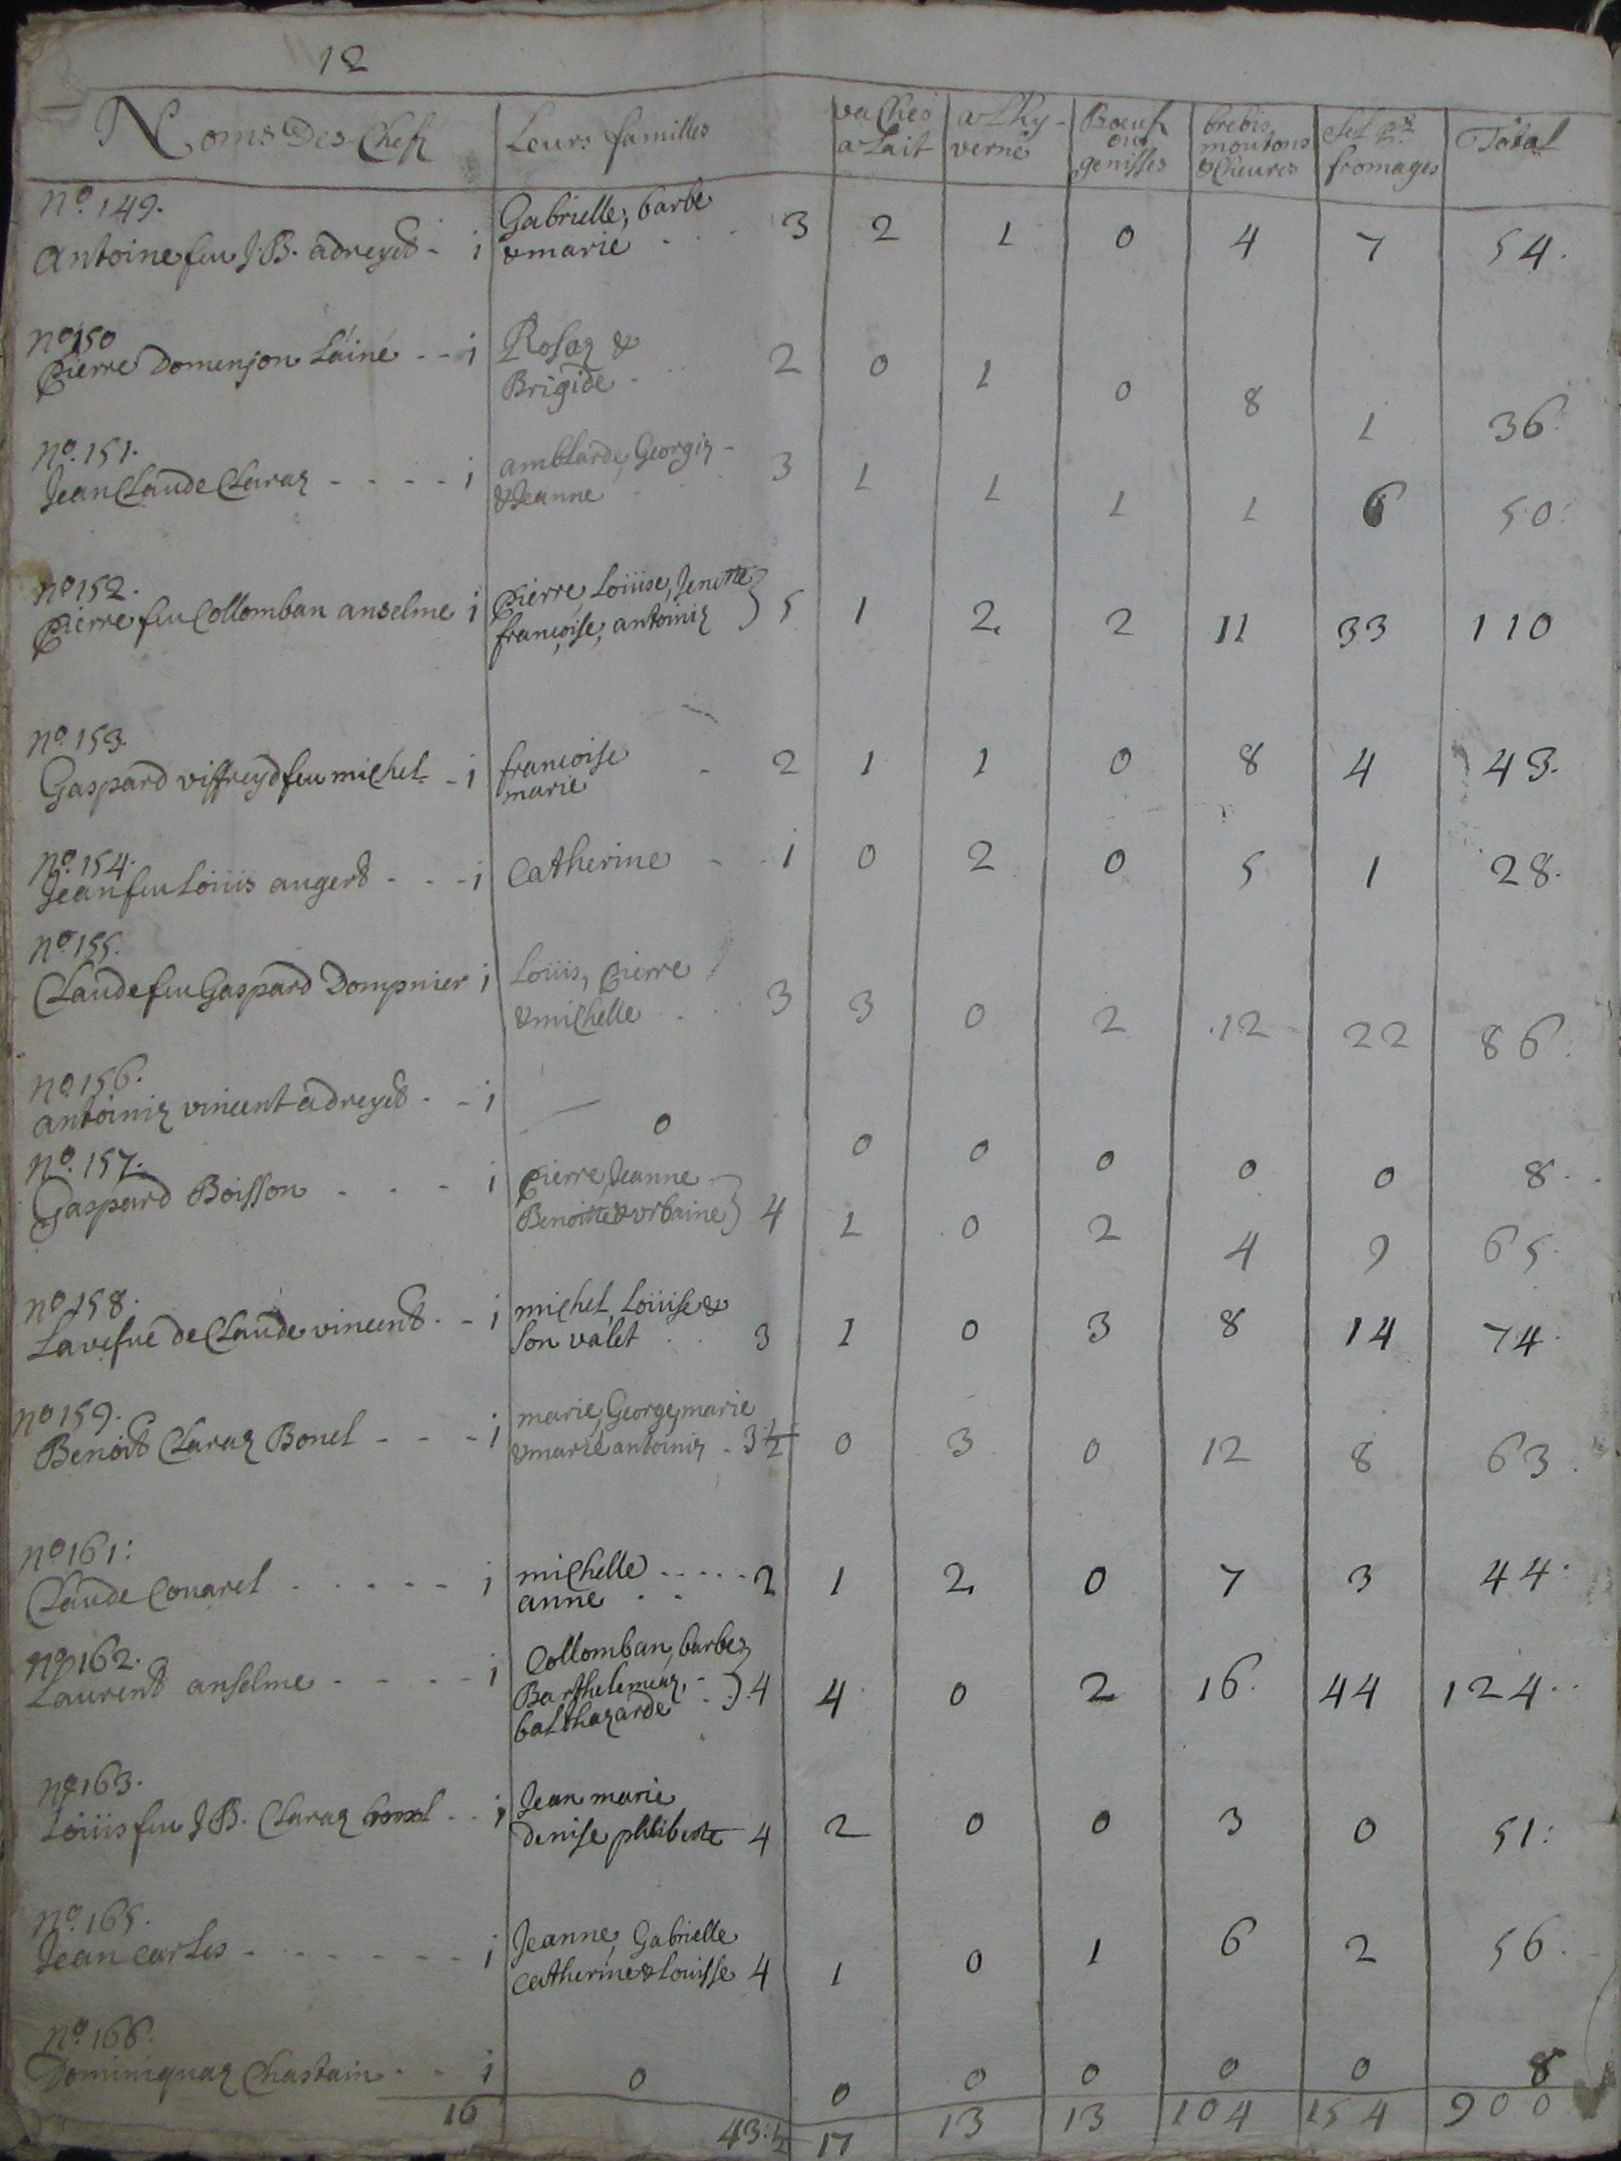 12
Noms Des Chefz Leurs familles vaches a Lait a Lhyverne Boeufz ou genisses brebis moutons & Cheures Sel pr fromages Total
No. 149.
Antoine feu J. B. adreyet - 1 Gabrielle, barbe & marie . . . 3 2 1 0 4 7 54.
No 150
Pierre Domenjon Lainé - - 1 Rosaz & Brigide . 2 0 1 0 8 1 36
No. 151.
Jean Claude Claraz - - - - 1 amblarde, Georgiz - & Jeanne 3 1 1 1 1 6 50:
No 152.
Pierre feu Collomban anselme 1 Pierre, Loüise, Jenotte françoise, antoiniz } 5 1 2 2 11 33 110
No. 153.
Gaspard viffreyd feu michel - 1 francoise marie - 2 1 1 0 8 4 43.
No. 154.
Jean feu Loüis augert - - - 1 Catherine - - 1 0 2 0 5 1 28.
No. 155.
Claude feu Gaspard Dompnier 1 Loüis, Pierre & michelle . . 3 3 0 2 12 22 86.
No. 156.
antoiniz vincent adreyet - - 1 0 0 0 0 0 0 8.
No. 157.
Gaspard Boisson . - - 1 Pierre, Jeanne Benoitte & vrbaine } 4 1 0 2 4 9 65.
No 158.
La vefue de Claude vincent - - 1 michel, Loüise & son valet . . 3 1 0 3 8 14 74.
No 159.
Benoit Claraz Bonel - - - 1 marie, George, marie & marie antoiniz - 3 1/2 0 3 0 12 8 63.
No 161:
Claude Couarel . . - - - 1 michelle - - - - anne . . 2 1 2 0 7 3 44.
No 162.
Laurent anselme - - - - 1 Collomban, barbe, Barthelemiaz, - balthazarde } 4 4 0 2 16. 44 124..
No 163.
Loüis feu J B. Claraz bonel - - 1 Jean marie Denise philiberte 4 2 0 0 3 0 51:
No. 165.
Jean Carles - - - - - - 1 Jeanne, Gabrielle Catherine & Louisse 4 1 0 1 6 2 56.
No. 166.
Dominiquaz Chastain - - 1 0 0 0 0 0 0 8
16 43: 1/2 17 13 13 104 154 900